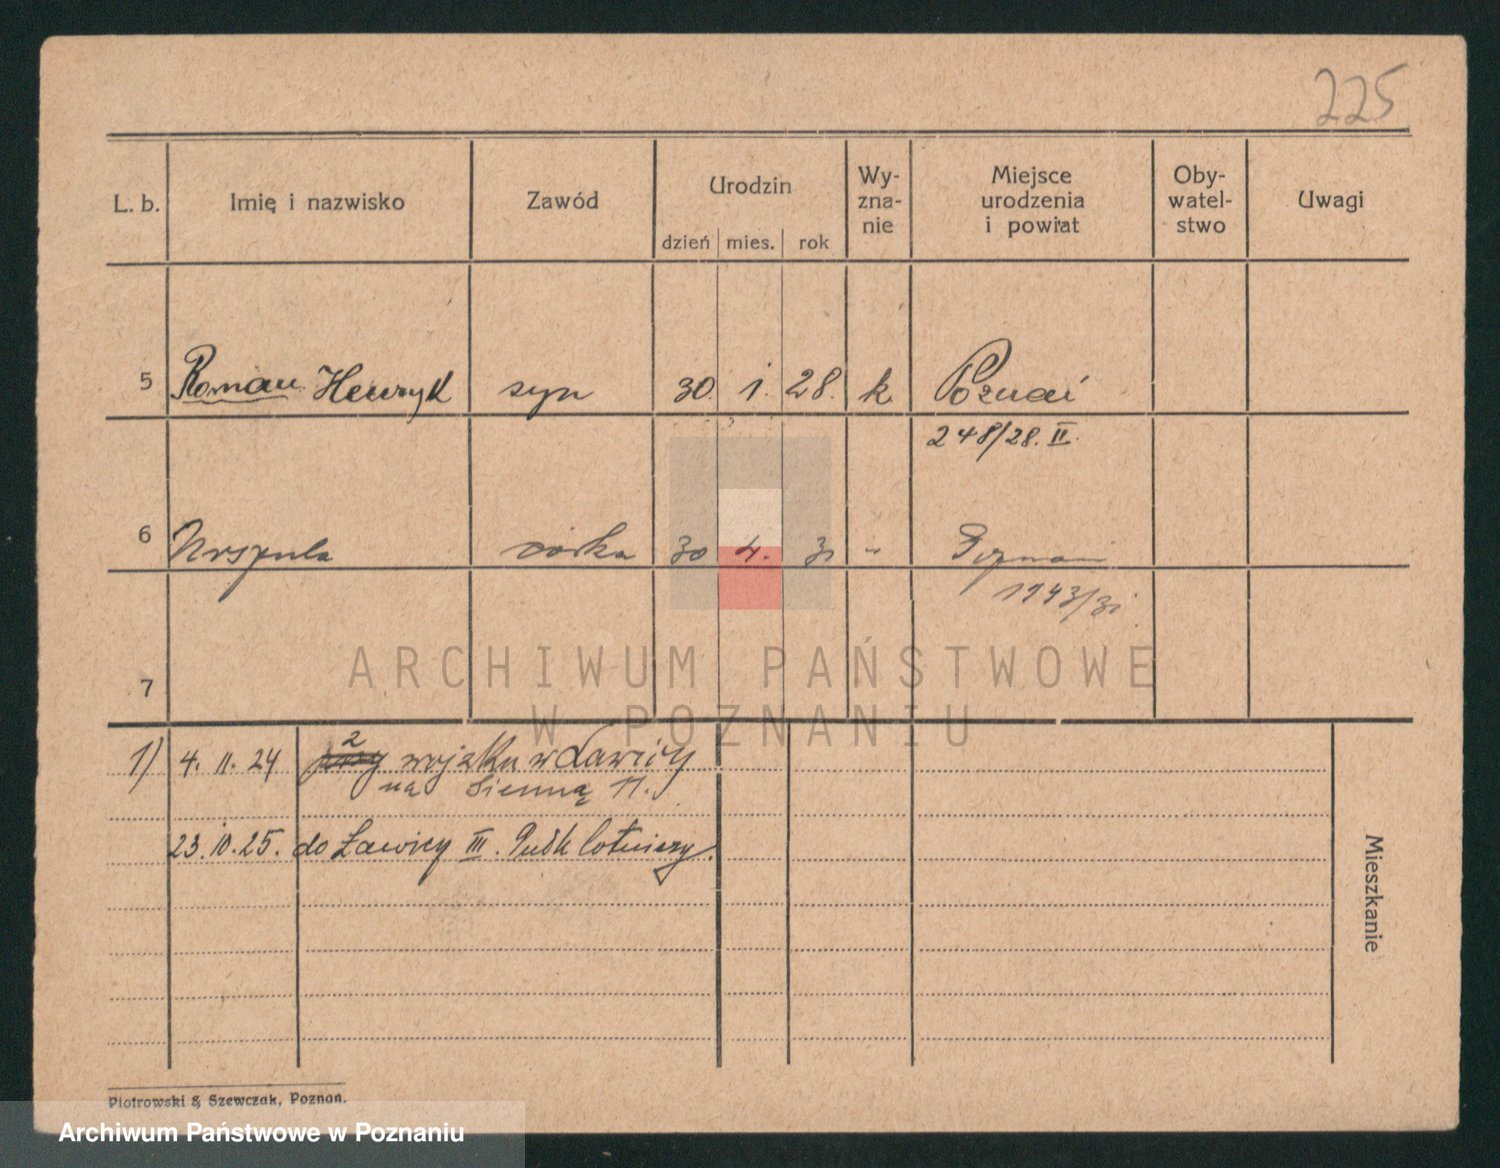 225
L. b. Imię i nazwisko Zawód Urodzin dzień mies. rok Wy-zna-nie Miejsce urodzenia i powiat Oby-watel-stwo Uwagi
5 Roman Henryk syn 30. 1. 28. k. Poznań
248/28. II.
6 Urszula córka 30 4. 31 " Poznań
1943/31.
7
ARCHIWUM PAŃSTWOWE
W POZNANIU
1) 4. 11. 24 z wojsku w Ławicy
na Sienną 11.
23. 10. 25. do Ławicy III. Pułk lotniczy.
Mieszkanie
Piotrowski & Szewczak, Poznań.
Archiwum Państwowe w Poznaniu